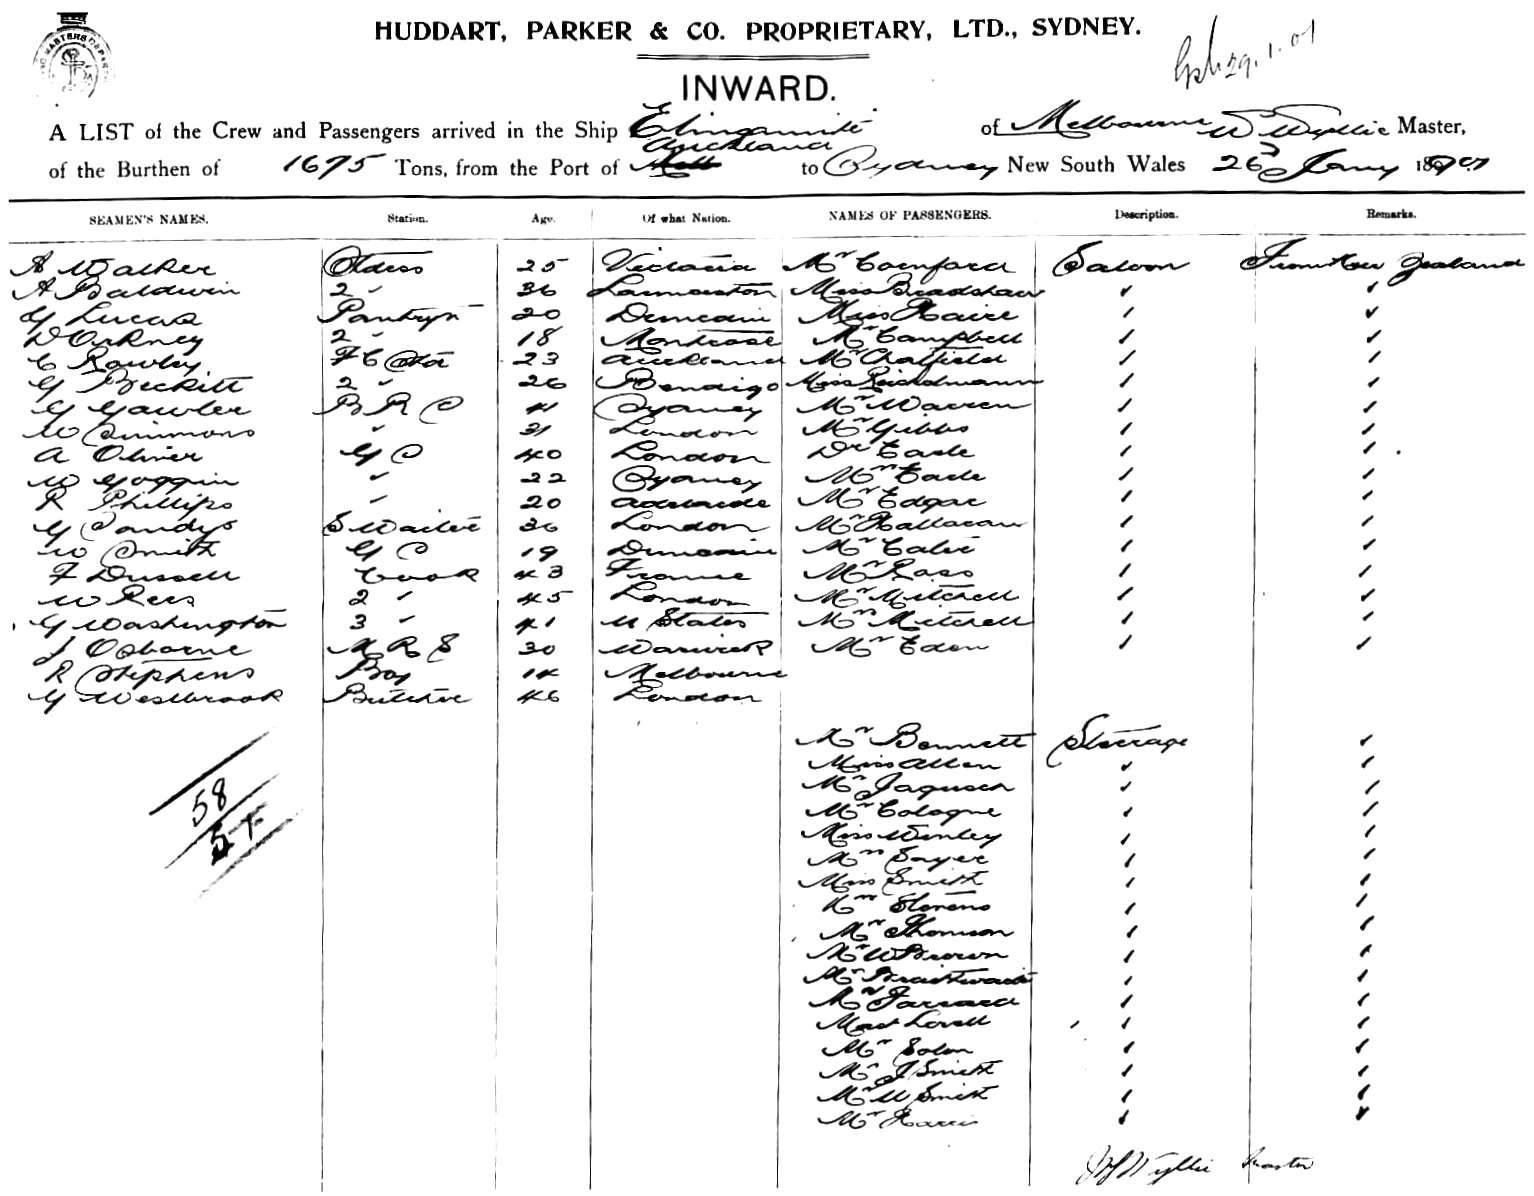 HUDDART, PARKER & CO. PROPRIETARY, LTD., SYDNEY.
29.1.01
INWARD.
A LIST of the Crew and Passengers arrived in the Ship Elingamite of Melbourne W Wyllie Master,
Auckland
of the Burthen of 1675 Tons, from the Port of Melb to Sydney New South Wales 26 Jany 1901
SEAMEN'S NAMES. Station. Age. Of what Nation. NAMES OF PASSENGERS. Description. Remarks.
A Walker Stdess 25 Victoria Mr Cornford Saloon From New Zealand
A Baldwin 2 " 36 Launceston Miss Bradshaw
G Lucas Pantryn 20 Dunedin Miss Haire
D Orkney 2 " 18 Montrose Mr Campbell
C Rowley F C 23 Auckland Mr Chatfield
G Beckitt 2 " 26 Bendigo Miss
G Gawler B R C 41 Sydney Mr Warren
W Simmons " 31 London Mr Gibbs
A Oliver G C 40 London Dr Eade
W Goggin " 22 Sydney Mrs Eade
R Phillips " 20 Adelaide Mr Edgar
G Sandys S Waiter 36 London Mr Hallaran
W Smith G C 19 Dunedin Mr
F Dussell Cook 43 France Mr Ross
W Rees 2 " 45 London Mr Mitchell
G Washington 3 " 41 U States Mrs Mitchell
J Osborne M R S 30 Warwick Mr Eden
R Stephens Boy 14 Melbourne
G Westbrook Butcher 46 London
Mr Bennett Steerage
Miss Allen
58
Mr Jagusch
Mr Cologne
Miss Winley
Mrs Sayer
Miss Smith
Mrs Stevens
Mr Thomson
Mr W Brown
Mr Braithwaite
Mr Farrard
Mast Lovell
Mr
Mr J Smith
Mr W Smith
Mr Harris
Wyllie Master